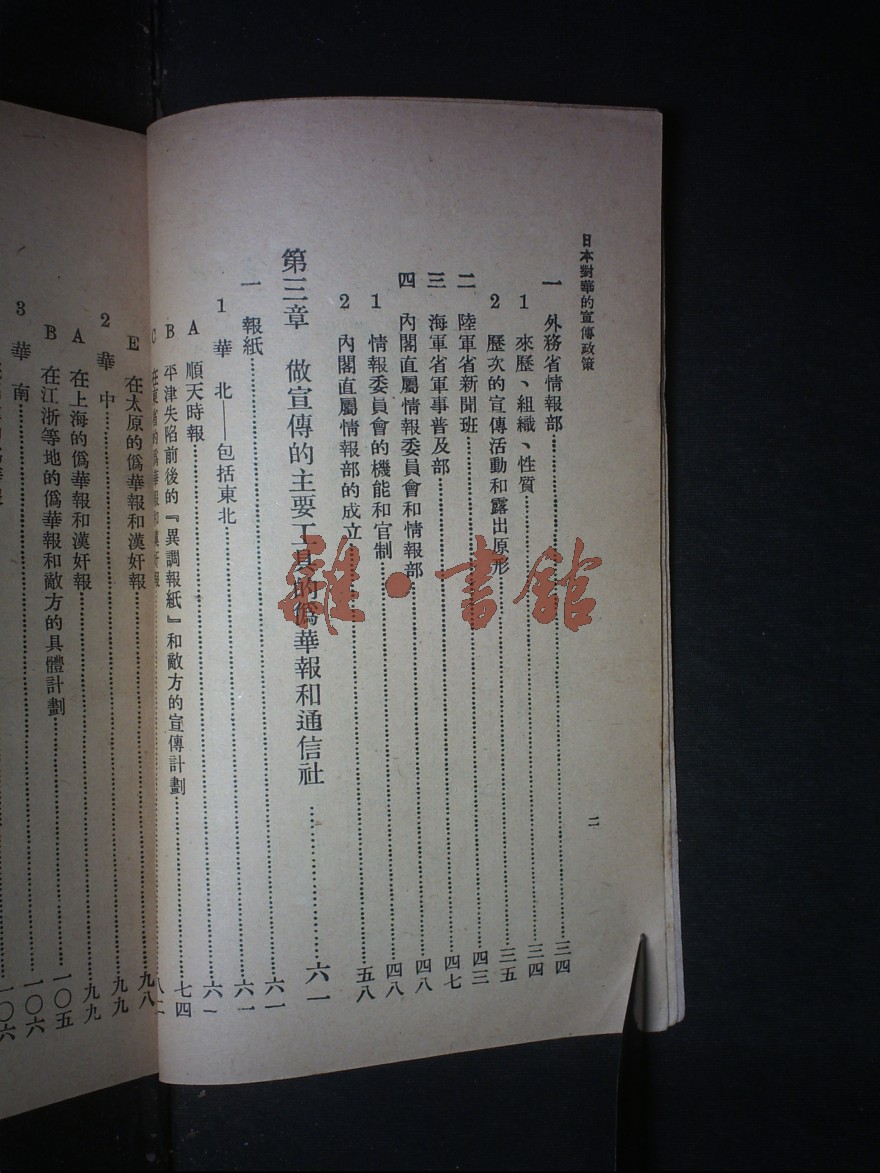 日本對華的宣傳政策
二
一 外務省情報部……三四
1 來歷、組織、性質……三四
2 歷次的宣傳活動和露出原形……三五
二 陸軍省新聞班……四三
三 海軍省軍事普及部……四七
四 內閣直屬情報委員會和情報部……四八
1 情報委員會的機能和官制……四八
2 內閣直屬情報部的成立……五八
第三章 做宣傳的主要工具的僞華報和通信社……六一
一 報紙……六一
1 華 北——包括東北……六一
A 順天時報……六一
B 平津失陷前後的『異調報紙』和敵方的宣傳計劃……七四
C 在東省的僞華報和漢奸報……八二
E 在太原的僞華報和漢奸報……九八
2 華 中……九九
A 在上海的僞華報和漢奸報……九九
B 在江浙等地的僞華報和敵方的具體計劃……一〇五
3 華 南……一〇六
一〇六
雜·書館